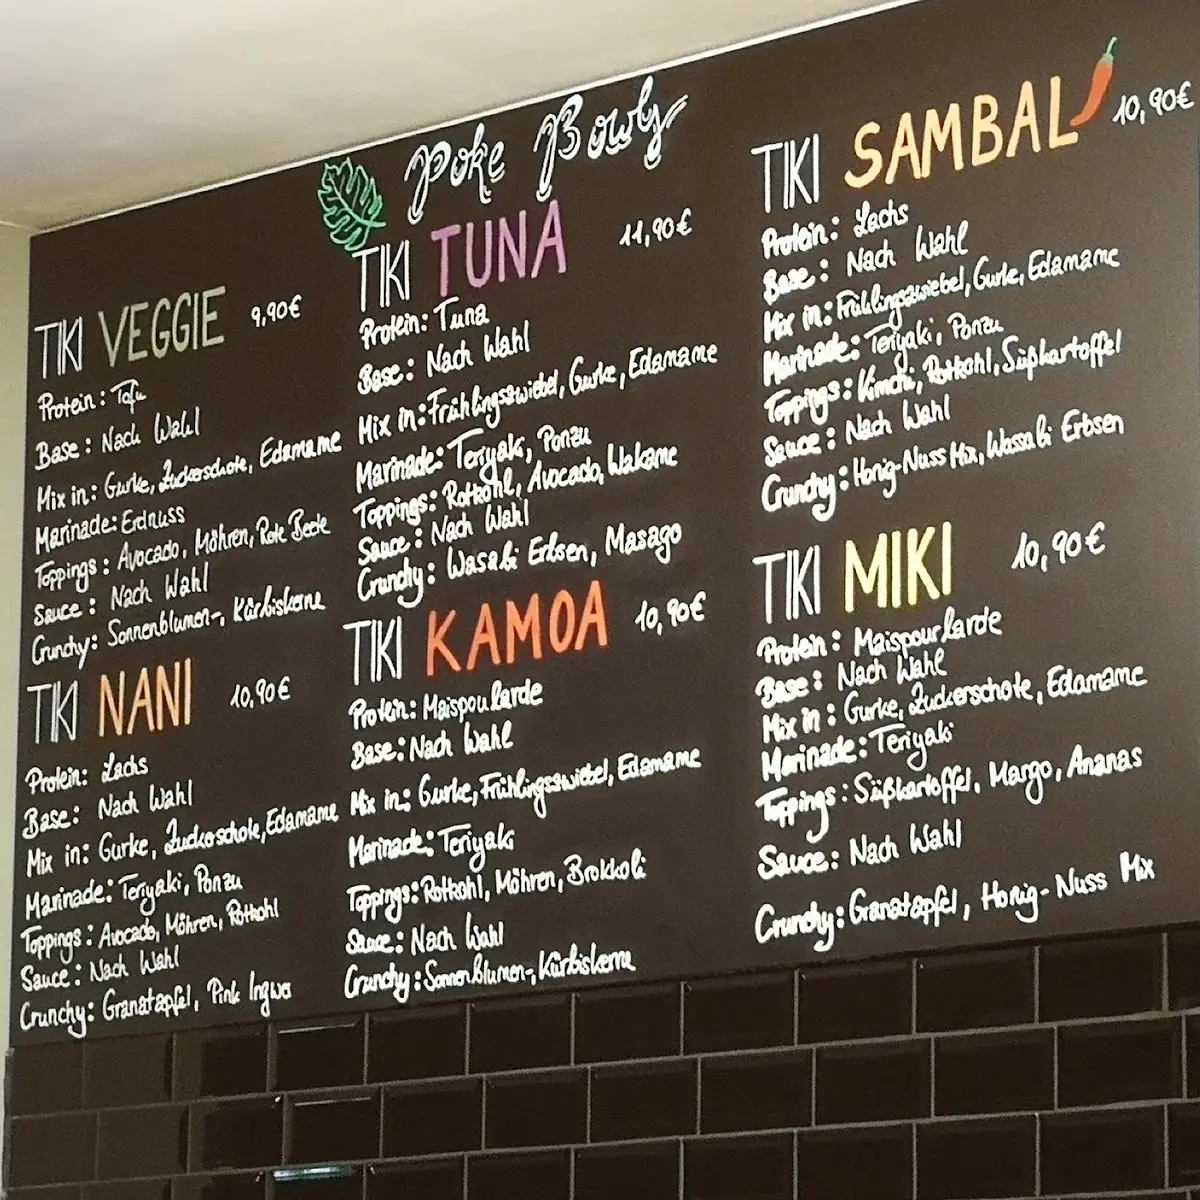 Poke Bowls
TIKI VEGGIE 9,90€
Protein: Tofu
Base: Nach Wahl
Mix in: Gurke, Zuckerschote, Edamame
Marinade: Erdnuss
Toppings: Avocado, Möhren, Rote Beete
Sauce: Nach Wahl
Crunchy: Sonnenblumen-, Kürbiskerne
TIKI NANI 10,90€
Protein: Lachs
Base: Nach Wahl
Mix in: Gurke, Zuckerschote, Edamame
Marinade: Teriyaki, Ponzu
Toppings: Avocado, Möhren, Rotkohl
Sauce: Nach Wahl
Crunchy: Granatapfel, Pink Ingwer
TIKI TUNA 11,90€
Protein: Tuna
Base: Nach Wahl
Mix in: Frühlingszwiebel, Gurke, Edamame
Marinade: Teriyaki, Ponzu
Toppings: Rotkohl, Avocado, Wakame
Sauce: Nach Wahl
Crunchy: Wasabi Erbsen, Masago
TIKI KAMOA 10,90€
Protein: Maispoularde
Base: Nach Wahl
Mix in: Gurke, Frühlingszwiebel, Edamame
Marinade: Teriyaki
Toppings: Rotkohl, Möhren, Brokkoli
Sauce: Nach Wahl
Crunchy: Sonnenblumen-, Kürbiskerne
TIKI SAMBAL 10,90€
Protein: Lachs
Base: Nach Wahl
Mix in: Frühlingszwiebel, Gurke, Edamame
Marinade: Teriyaki, Ponzu
Toppings: Kimchi, Rotkohl, Süßkartoffel
Sauce: Nach Wahl
Crunchy: Honig-Nuss Mix, Wasabi Erbsen
TIKI MIKI 10,90€
Protein: Maispourlarde
Base: Nach Wahl
Mix in: Gurke, Zuckerschote, Edamame
Marinade: Teriyaki
Toppings: Süßkartoffel, Mango, Ananas
Sauce: Nach Wahl
Crunchy: Granatapfel, Honig-Nuss Mix